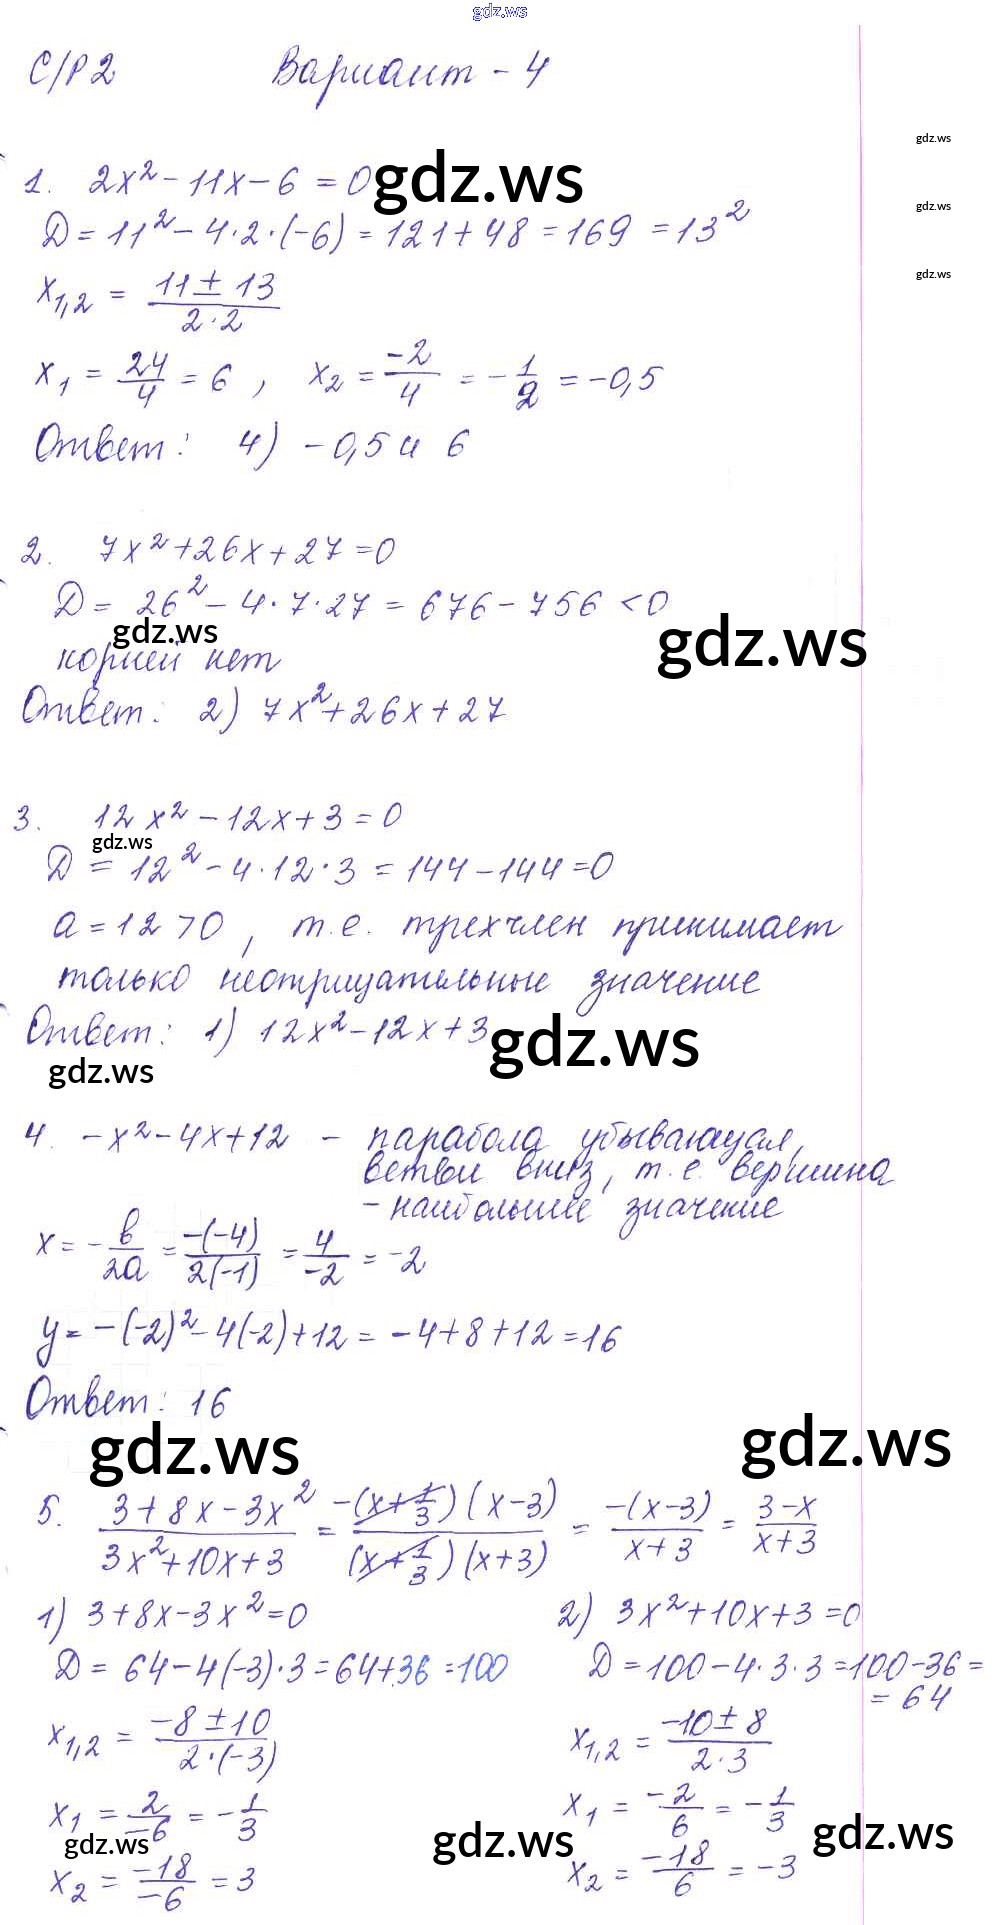 gdz.ws
С/Р 2 Вариант - 4
gdz.ws
1. 2x² - 11x - 6 = 0 gdz.ws
gdz.ws
D = 11² - 4·2·(-6) = 121 + 48 = 169 = 13²
gdz.ws
x₁,₂ = (11 ± 13)/(2·2)
x₁ = 24/4 = 6 , x₂ = -2/4 = -1/2 = -0,5
Ответ: 4) -0,5 и 6
2. 7x² + 26x + 27 = 0
D = 26² - 4·7·27 = 676 - 756 < 0
gdz.ws gdz.ws
корней нет
Ответ: 2) 7x² + 26x + 27
3. 12x² - 12x + 3 = 0
gdz.ws
D = 12² - 4·12·3 = 144 - 144 = 0
a = 12 > 0 , т.е. трехчлен принимает
только неотрицательные значение
Ответ: 1) 12x² - 12x + 3
gdz.ws gdz.ws
4. -x² - 4x + 12 - парабола убывающая,
ветви вниз, т.е. вершина
- наибольшее значение
x = -в/2a = -(-4)/2(-1) = 4/-2 = -2
y = -(-2)² - 4(-2) + 12 = -4 + 8 + 12 = 16
Ответ: 16
gdz.ws gdz.ws
5. (3 + 8x - 3x²)/(3x² + 10x + 3) = -(x + 1/3)(x - 3)/(x + 1/3)(x + 3) = -(x - 3)/(x + 3) = (3 - x)/(x + 3)
1) 3 + 8x - 3x² = 0 2) 3x² + 10x + 3 = 0
D = 64 - 4(-3)·3 = 64 + 36 = 100 D = 100 - 4·3·3 = 100 - 36 =
= 64
x₁,₂ = (-8 ± 10)/(2·(-3)) x₁,₂ = (-10 ± 8)/(2·3)
x₁ = 2/-6 = -1/3 x₁ = -2/6 = -1/3
gdz.ws gdz.ws gdz.ws
x₂ = -18/-6 = 3 x₂ = -18/6 = -3